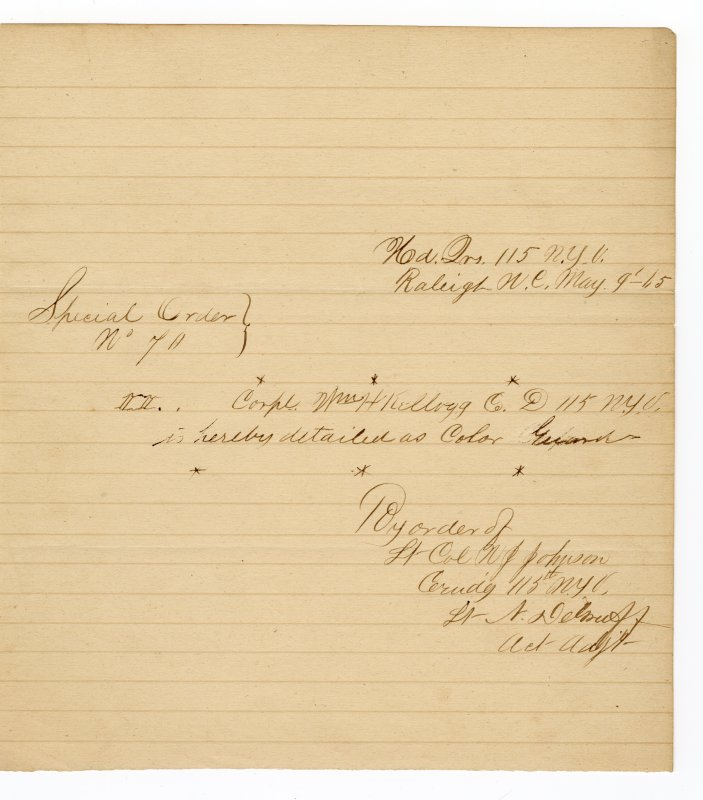 Hd. Qrs. 115 N.Y.V.
Raleigh N.C. May. 9' - 65
Special Order }
No 70
* * *
II. . Corpl. Wm H Kellogg C. D 115 N.Y.V.
is hereby detailed as Color Guard
* * *
By order of
Lt Col N J Johnson
Comdg 115th N.Y.V.
Lt N.
Act Adjt